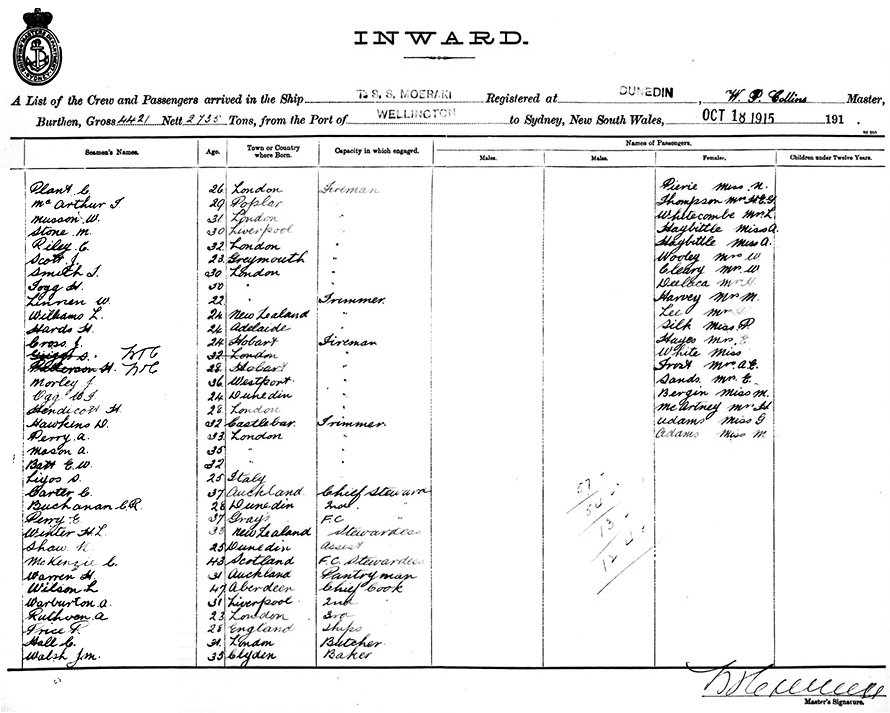 INWARD.
A List of the Crew and Passengers arrived in the Ship T.S.S. MOERAKI Registered at DUNEDIN, W. P. Collins Master,
Burthen, Gross 4421 Nett 2735 Tons, from the Port of WELLINGTON to Sydney, New South Wales, OCT 18 1915 191 .
Names of Passengers.
Seamen's Names. Age. Town or Country where Born. Capacity in which engaged. Males. Males. Females. Children under Twelve Years.
Plant C. 26 London Fireman Pierie Miss N.
McArthur J 29 Poplar " Thompson Mrs
Musson W. 31 London " Whitecombe Mrs L.
Stone M. 30 Liverpool " Haybittle Miss A.
Riley C. 32 London " Haybittle Miss A.
Scott J. 23 Greymouth " Wooley Mrs W
Smith J. 30 London " Cleary Mrs W
Fogg H. 50 " "
Linnen W. 22 " Trimmer Harvey Mrs M.
Williams L. 24 New Zealand " Lee Mrs
Hards H. 24 Adelaide " Silk Miss P.
Cross J. 24 Hobart Fireman Hayes Mrs E
S. 32 London " White Miss
H. 28 Hobart " Frost Mrs A.E.
Morley J 36 Westport " Sands Mrs E.
Ogg W J 24 Dunedin " Bergin Miss M.
Hendicott H. 28 London " McArtney Mrs H
Hawkins D. 32 Castlebar Trimmer Adams Miss G
Perry A. 33 London " Adams Miss M
Mason A. 35 " "
Batt E. W. 32 " "
25 Italy
Carter C. 37 Auckland Chief Steward
Buchanan C.R. 28 Dunedin 2nd "
Perry E 37 Grays F.C "
Winter H.L. 33 New Zealand Stewardess
Shaw 25 Dunedin Assist
McKenzie C. 43 Scotland F.C. Stewardess
Warren H. 31 Auckland Pantryman
Wilson L 47 Aberdeen Chief Cook
Warburton A. 31 Liverpool 2nd "
Ruthven A 23 London 3rd
Price F. 28 England Ships
Hall C. 31 London Butcher
Walsh J.M. 35 Clyden Baker
Master's Signature.